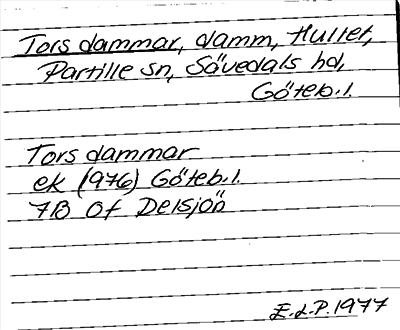 Tors dammar, damm, Hultet,
Partille sn, Sävedals hd,
Göteb.l.
Tors dammar
ek (976) Göteb.l.
7B 0f Delsjön
E.d.P. 1977